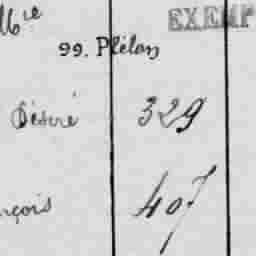 Mie EXEMP
99. Plélan
Désiré 329
nçois 407